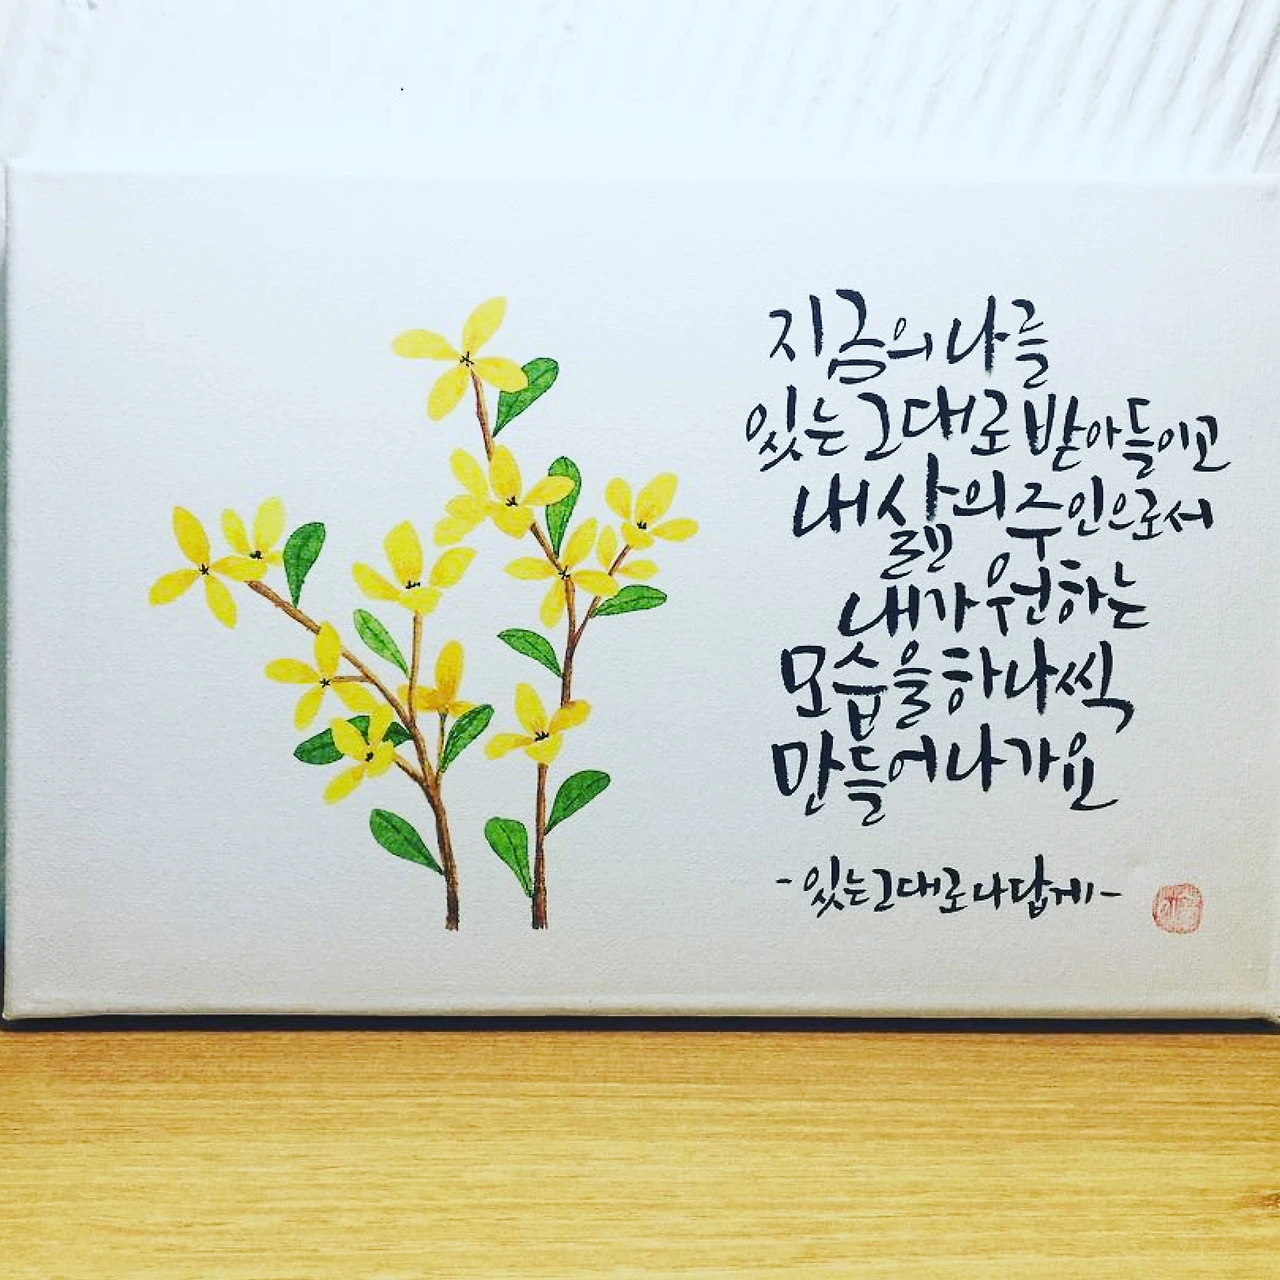 지금의 나를
있는 그대로 받아들이고
내 삶의 주인으로서
내가 원하는
모습을 하나씩
만들어 나가요
-있는 그대로 나답게-